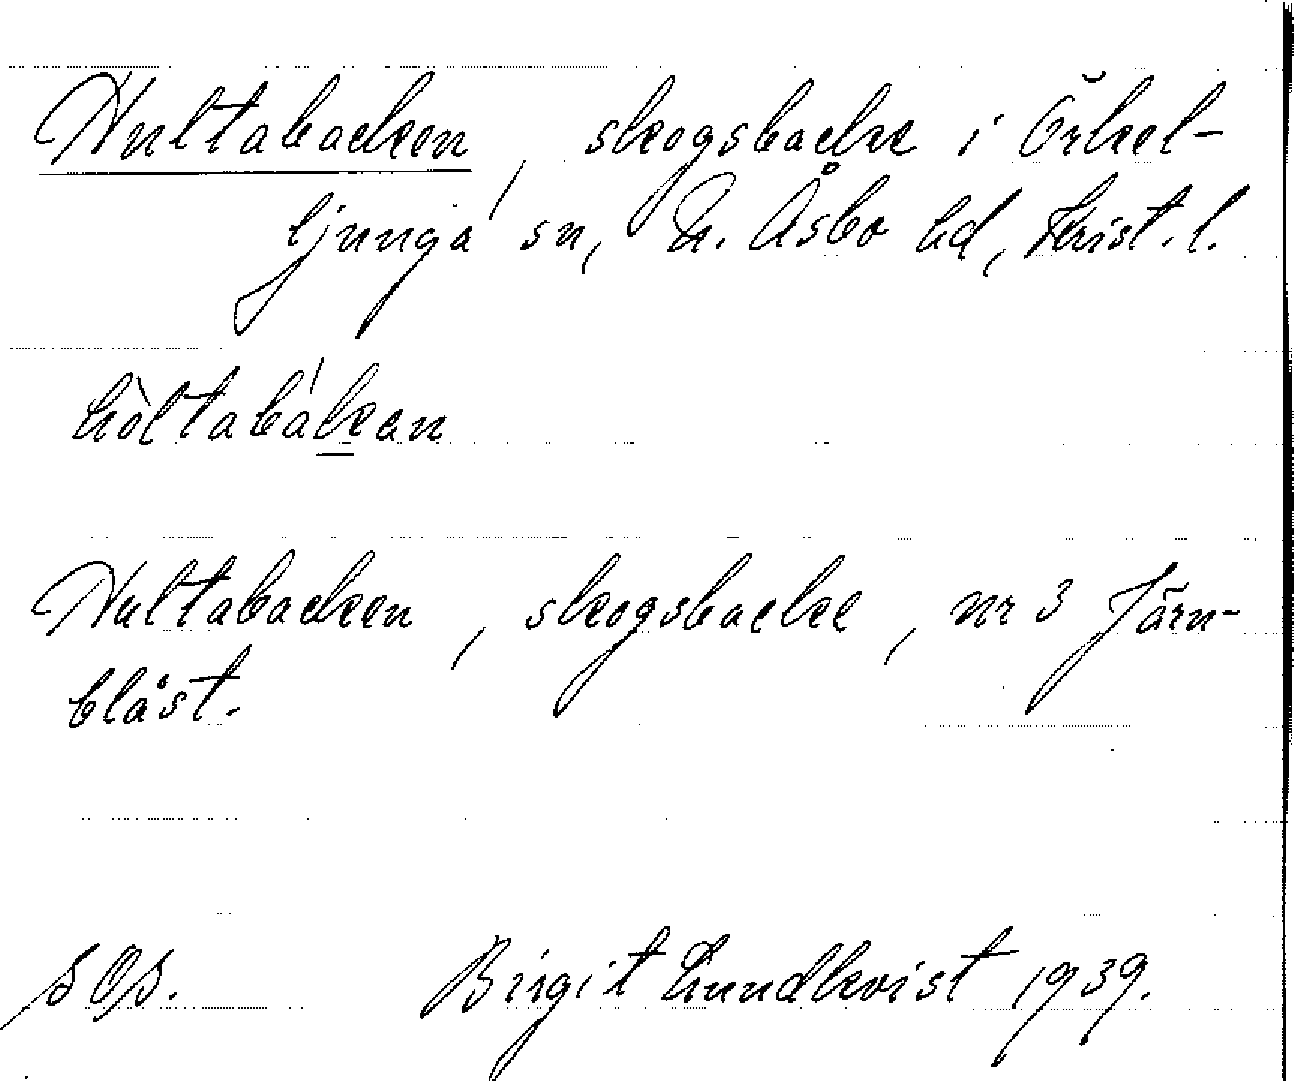 Hultabacken, skogsbacke i Örkel-
ljunga sn, N. Åsbo hd, Krist. l.
hòltabákan
Hultabacken, skogsbacke, nr 3 Järn-
blåst.
SOS. Birgit Lundkvist 1939.